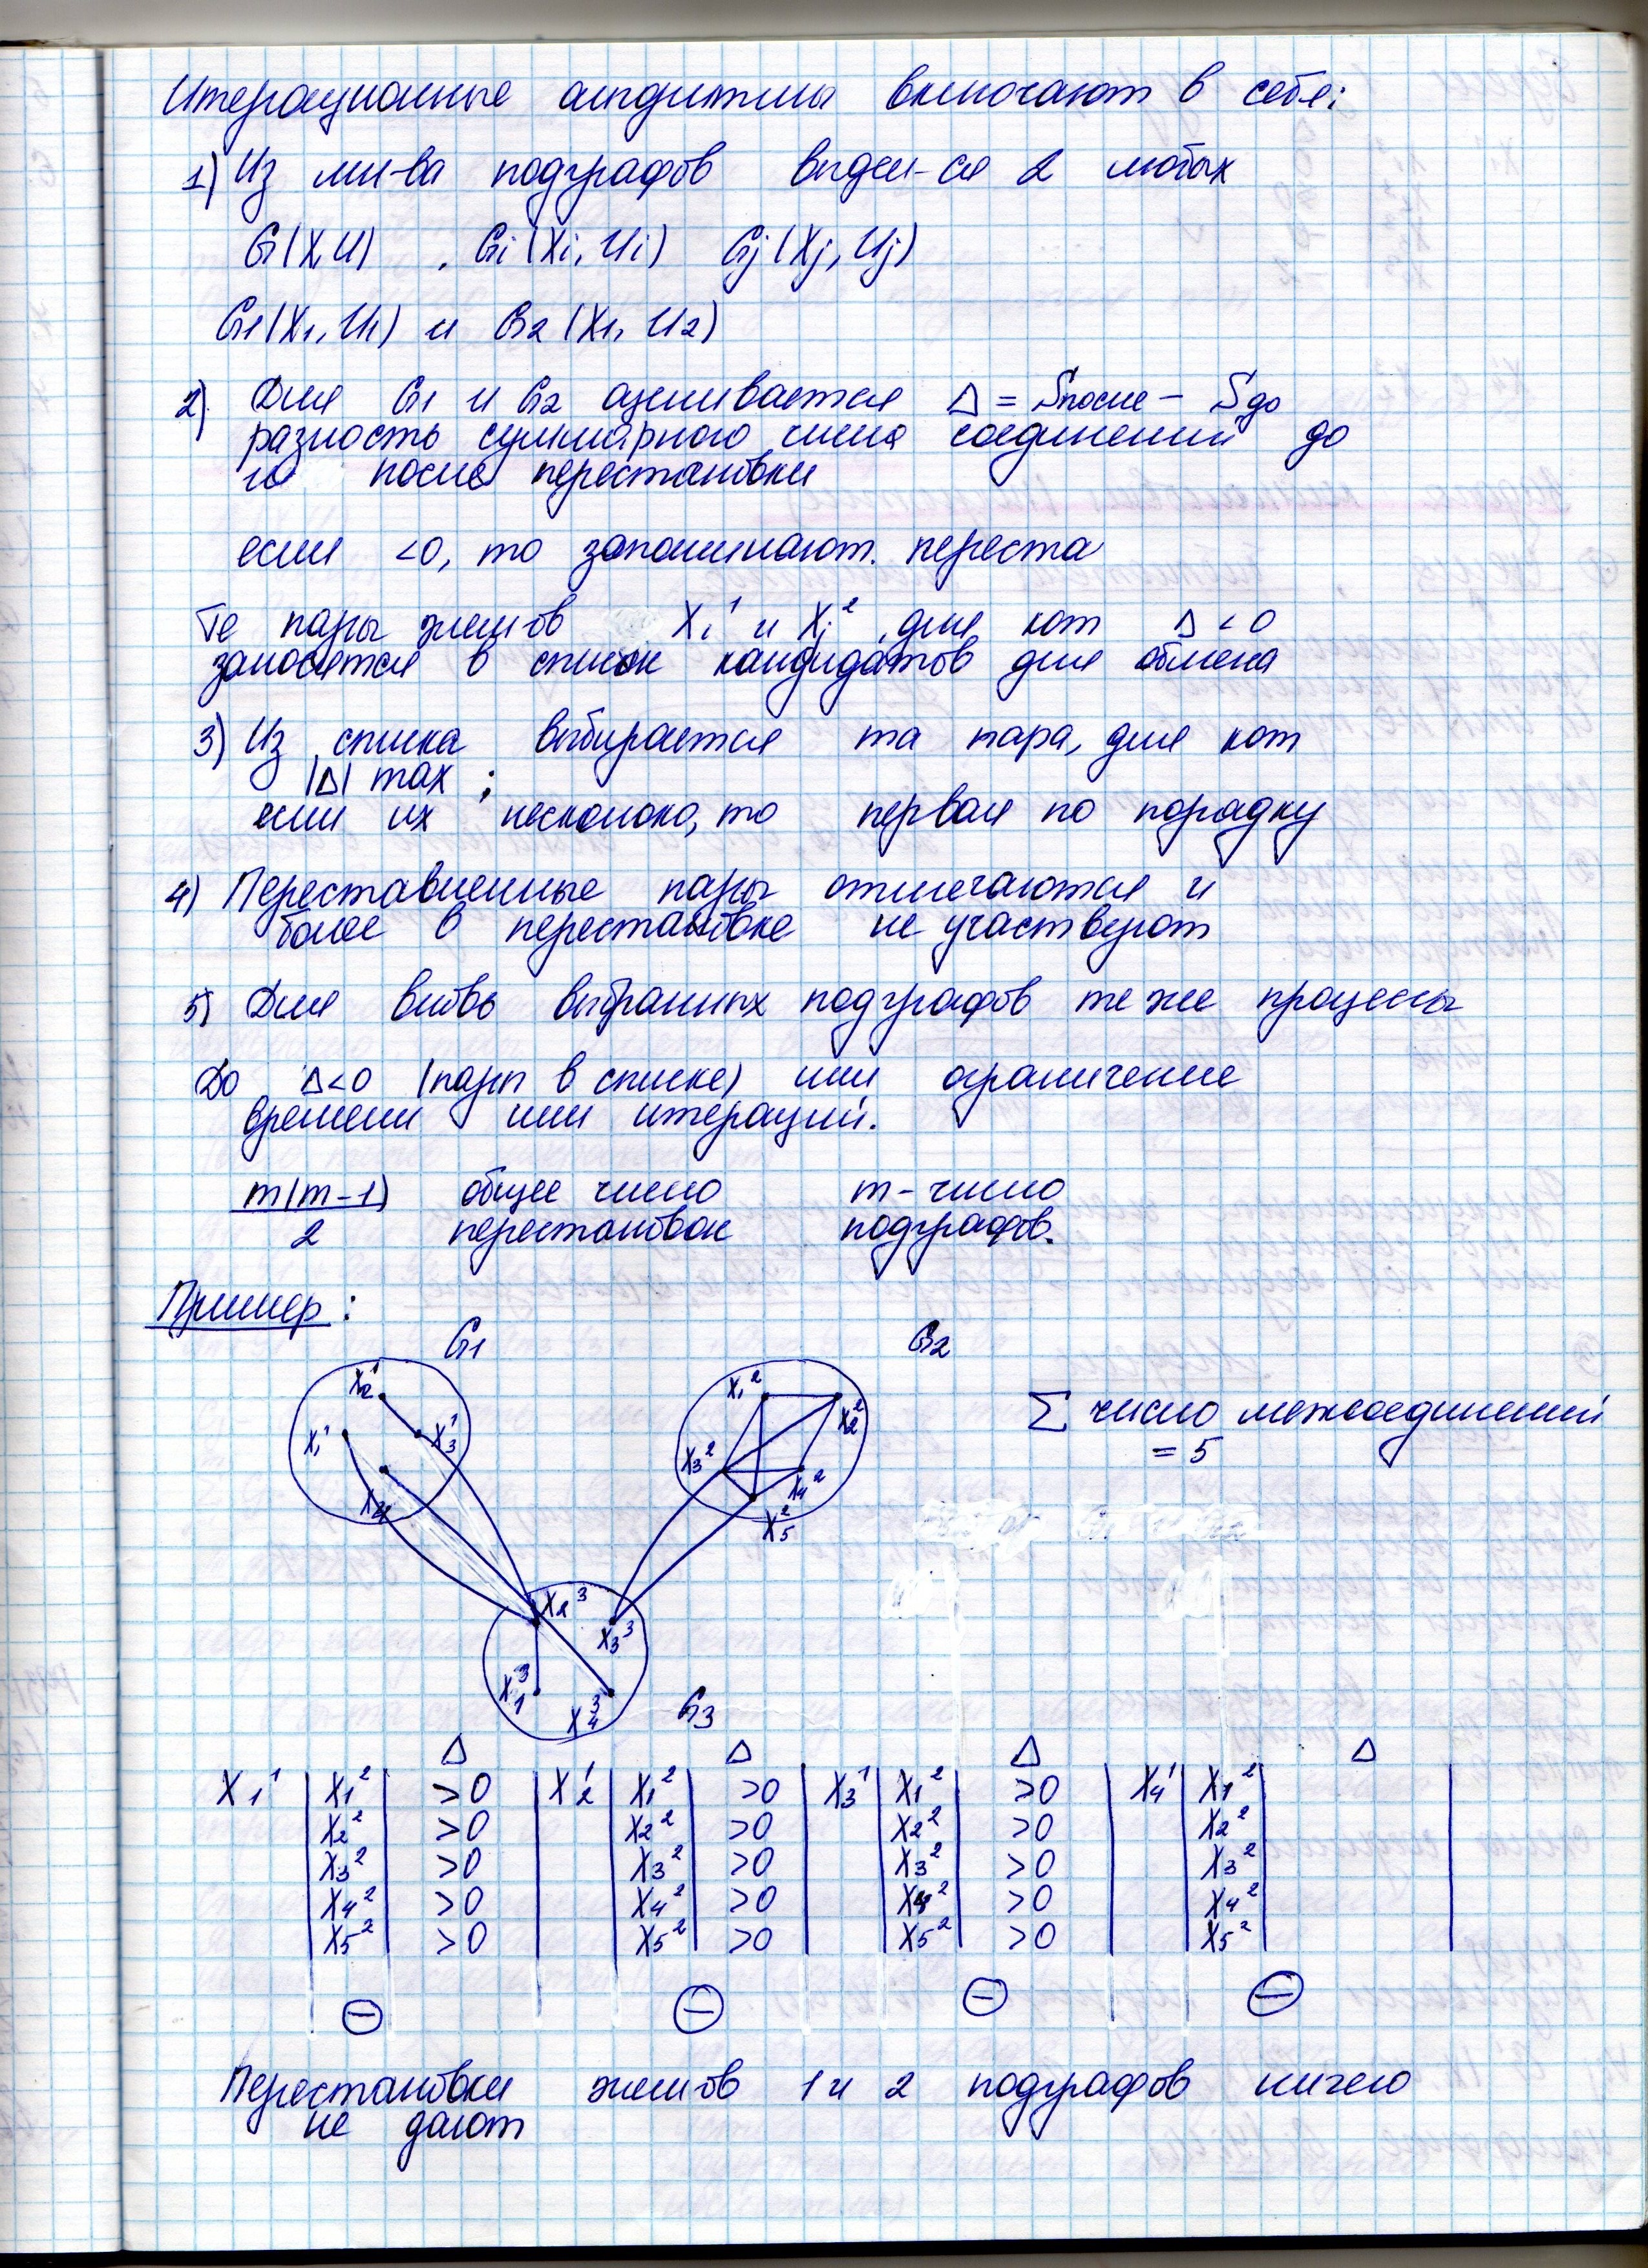 Итерационные алгоритмы включают в себя:
1) Из мн-ва подграфов выдел-ся 2 любых
G(X,U) , Gi (Xi, Ui) Gj (Xj, Uj)
G1(X1, U1) и G2 (X1, U2)
2) Для G1 и G2 оценивается Δ = Sпосле - Sдо
разность суммарного числа соединений до
и после перестановки
если <0, то запоминают. переста
Те пары элемов Xi¹ и Xj², для кот Δ < 0
заносятся в список кандидатов для обмена
3) Из списка выбирается та пара, для кот
|Δ| max ;
если их несколоко, то первая по порадку
4) Переставленные пары отмечаются и
более в перестановке не участвуют
5) Для вновь выбранных подграфов те же процессы
До Δ<0 (пары в списке) или ограничение
времени или итераций.
m(m-1) общее число m - число
2 перестановок подграфов.
Пример:
G1 G2
X2¹ X1² X2²
X1¹ X3¹ X3² X4²
X4 X5²
∑ число межсоединений
= 5
X2³ X3³
X1³ X4³ G3
Δ Δ Δ Δ
X1¹ X1² >0 X2¹ X1² >0 X3¹ X1² >0 X4¹ X1²
X2² >0 X2² >0 X2² >0 X2²
X3² >0 X3² >0 X3² >0 X3²
X4² >0 X4² >0 X4² >0 X4²
X5² >0 X5² >0 X5² >0 X5²
⊖ ⊖ ⊖ ⊖
Перестановки элемов 1 и 2 подграфов ничего
не дают